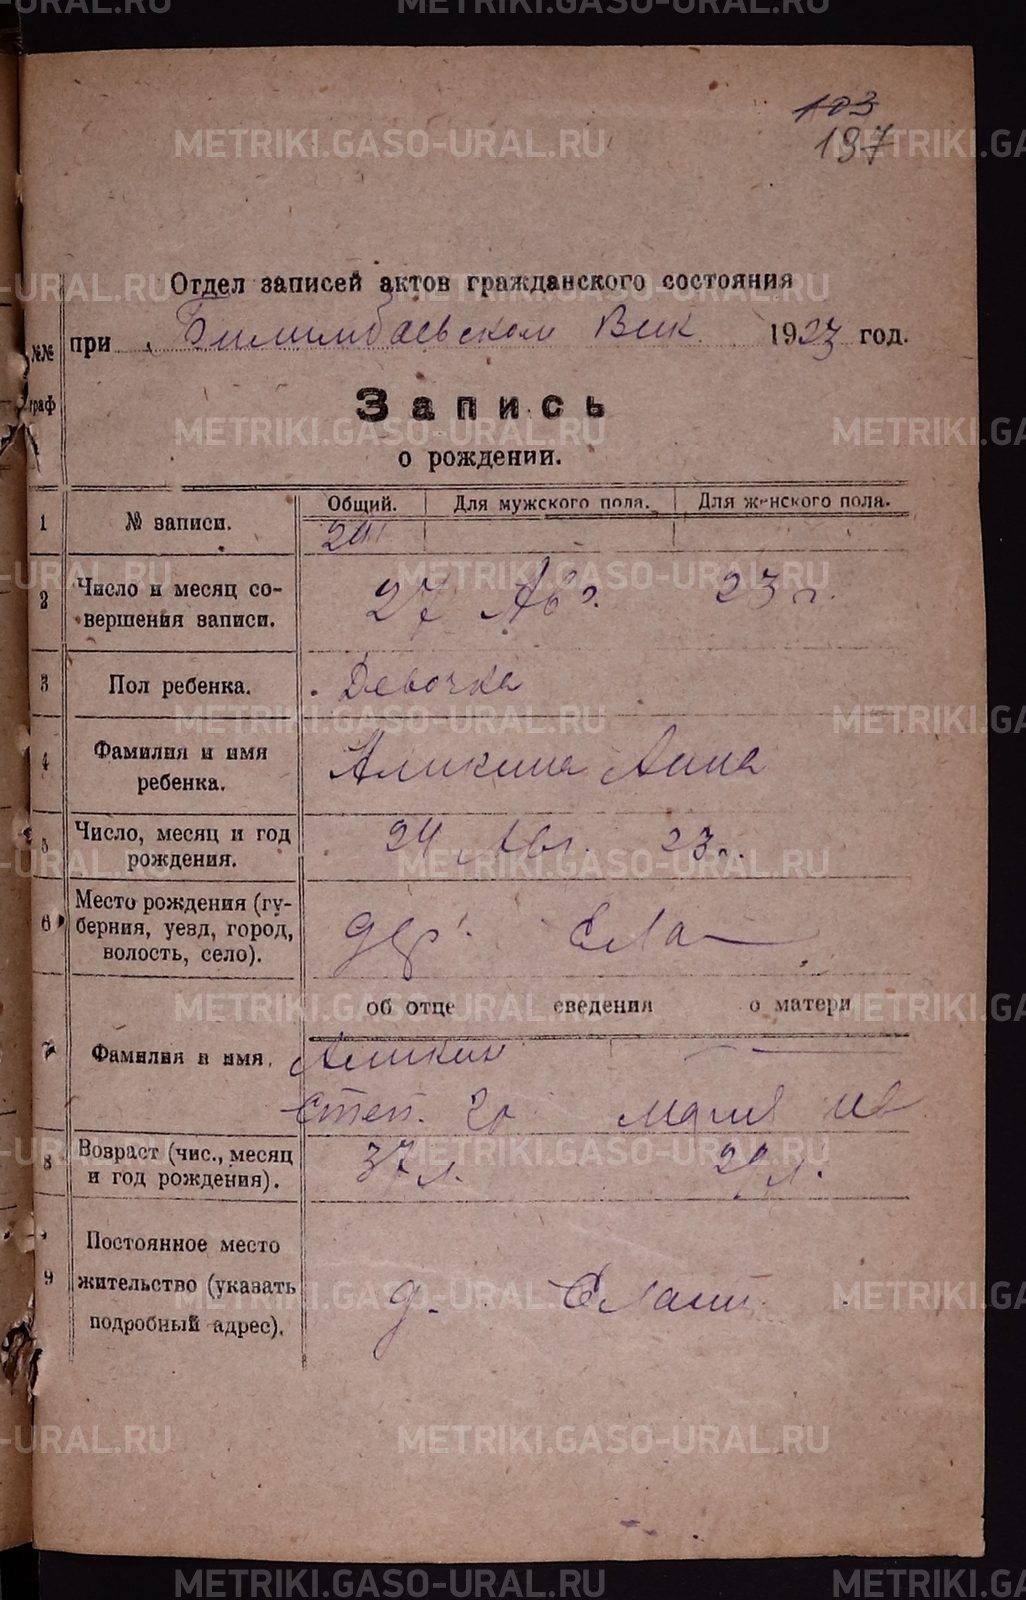 103
197
Отдел записей актов гражданского состояния
при Билимбаевском Вик 1923 год.
№№ граф
Запись
о рождении.
Общий. Для мужского пола. Для женского пола.
1 № записи.
2 Число и месяц со-
вершения записи. 27 Авг. 23 г.
3 Пол ребенка. Девочка
4 Фамилия и имя
ребенка. Аликина Анна
5 Число, месяц и год
рождения. 24 Авг. 23 г.
6 Место рождения (гу-
берния, уезд, город,
волость, село). дер.
об отце сведения о матери
7 Фамилия и имя. Аликин
Степ.
8 Возраст (чис., месяц
и год рождения). 37 л. 29 л.
9 Постоянное место
жительство (указать
подробный адрес). д.
METRIKI.GASO-URAL.RU